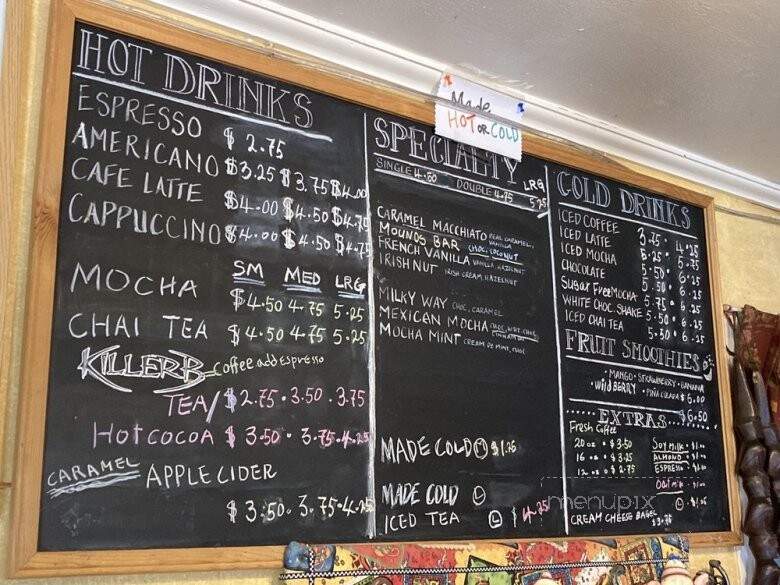 Made
HOT OR COLD
HOT DRINKS
ESPRESSO $2.75
AMERICANO $3.25 $3.75 $4.00
CAFE LATTE $4.00 $4.50 $4.75
CAPPUCCINO $4.00 $4.50 $4.75
SM MED LRG
MOCHA $4.50 4.75 5.25
CHAI TEA $4.50 4.75 5.25
KILLER B Coffee add Espresso
TEA/ $2.75 · 3.50 · 3.75
Hot cocoa $3.50 · 3.75 · 4.25
CARAMEL APPLE CIDER
$3.50 · 3.75 · 4.25
SPECIALTY
SINGLE 4.50 DOUBLE 4.75 LRG 5.25
CARAMEL MACCHIATO REAL CARAMEL, VANILLA
MOUNDS BAR CHOC, COCONUT
FRENCH VANILLA VANILLA, HAZELNUT
IRISH NUT IRISH CREAM, HAZELNUT
MILKY WAY CHOC, CARAMEL
MEXICAN MOCHA CHOC,
MOCHA MINT CREME DE MINT, CHOC
MADE COLD M $1.25
MADE COLD L
ICED TEA L $4.25
COLD DRINKS
ICED COFFEE 3.75 · 4.25
ICED LATTE 5.25 · 5.75
ICED MOCHA 5.50 · 6.25
CHOCOLATE 5.50 · 6.25
Sugar Free MOCHA 5.75 · 6.25
WHITE CHOC. SHAKE 5.50 · 6.25
ICED CHAI TEA 5.50 · 6.25
FRUIT SMOOTHIES
· MANGO · STRAWBERRY · BANANA
· WILDBERRY · PIÑA COLADA $6.00
$6.50
EXTRAS
Fresh Coffee
20 oz · $3.50 SOY MILK · $1.00
16 oz · $3.25 ALMOND
12 oz · $2.75 ESPRESSO
Oat Milk
CREAM CHEESE BAGEL $3.75
menupix